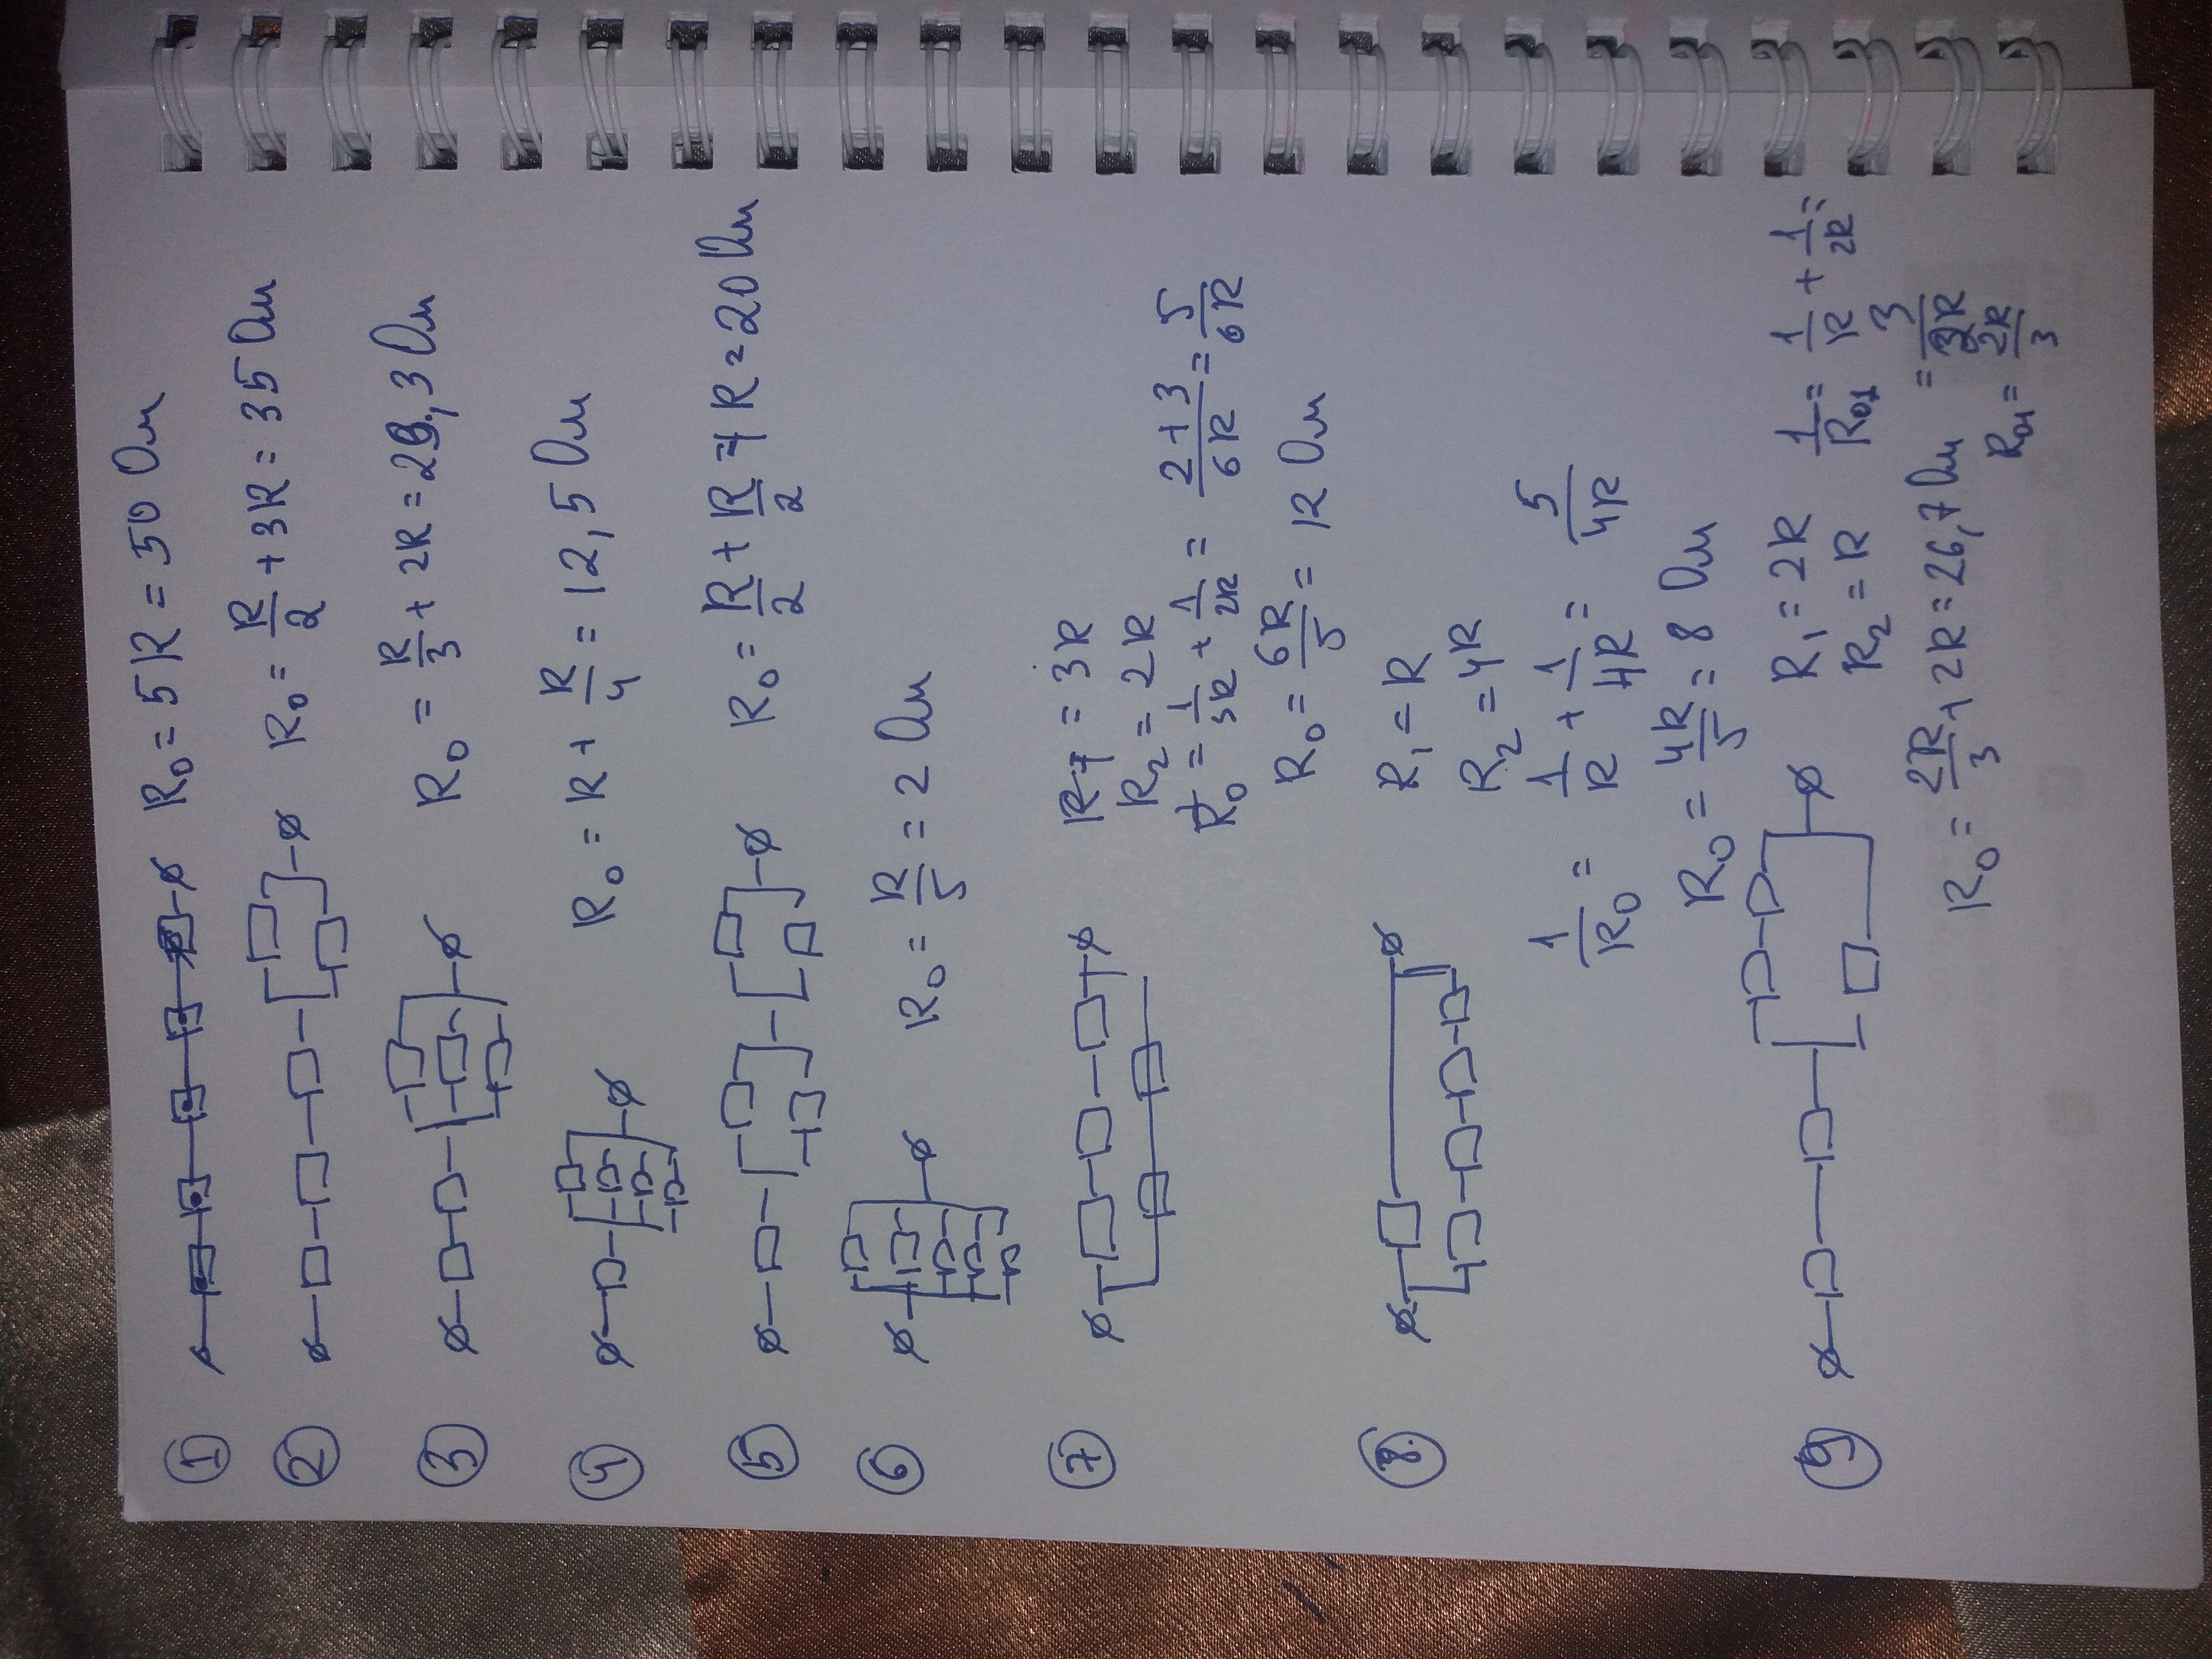 ① R₀ = 5R = 50 Ом
② R₀ = R/2 + 3R = 35 Ом
③ R₀ = R/3 + 2R = 29,3 Ом
④ R₀ = R + R/4 = 12,5 Ом
⑤ R₀ = R/2 + R/2 + R = 20 Ом
⑥ R₀ = R/5 = 2 Ом
⑦ R₁ = 3R
R₂ = 2R
1/R₀ = 1/3R + 1/2R = 2+3/6R = 5/6R
R₀ = 6R/5 = 12 Ом
⑧ R₁ = R
R₂ = 4R
1/R₀ = 1/R + 1/4R = 5/4R
R₀ = 4R/5 = 8 Ом
⑨ R₁ = 2R
R₂ = R
1/R₀₁ = 1/R + 1/2R =
= 3/2R
R₀₁ = 2R/3
R₀ = 2R/3 + 2R = 26,7 Ом